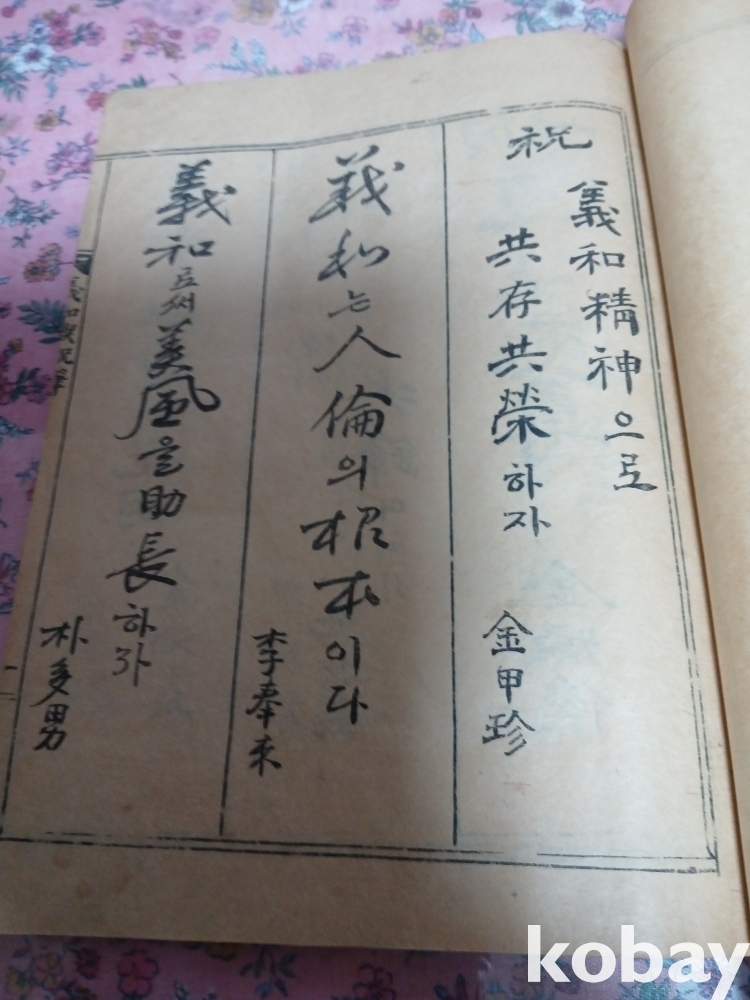 祝
義和精神으로
共存共榮하자
金甲珍
義和는人倫의根本이다
李奉来
義和로써美風을助長하라
朴多男
kobay